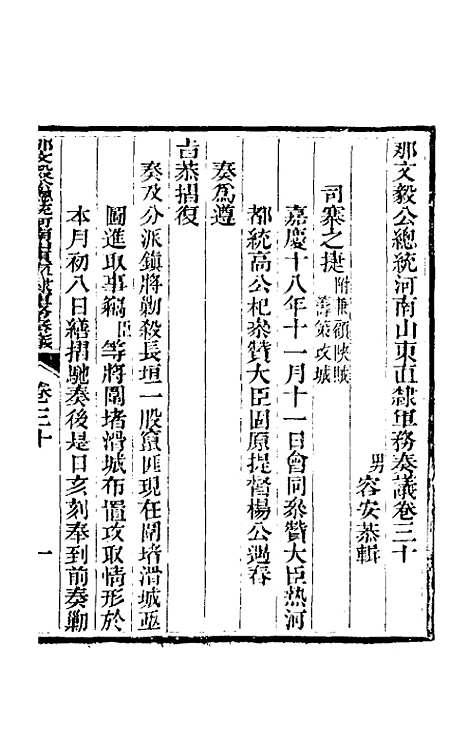 那文毅公總統河南山東直隸軍務奏議卷三十
男容安恭輯
司寨之捷附兜剿陝賊
籌策攻城
嘉慶十八年十一月十一日會同叅贊大臣熱河
都統高公杞叅贊大臣固原提督楊公遇春
奏爲遵
旨恭摺復
奏及分派鎮將勦殺長垣一股竄匪現在圍堵滑城並
圖進取事竊臣等將圍堵滑城布置攻取情形於
本月初八日繕摺馳奏後是日亥刻奉到前奏勦
那文毅公總統河南山東直隸軍務奏議
卷三十
一